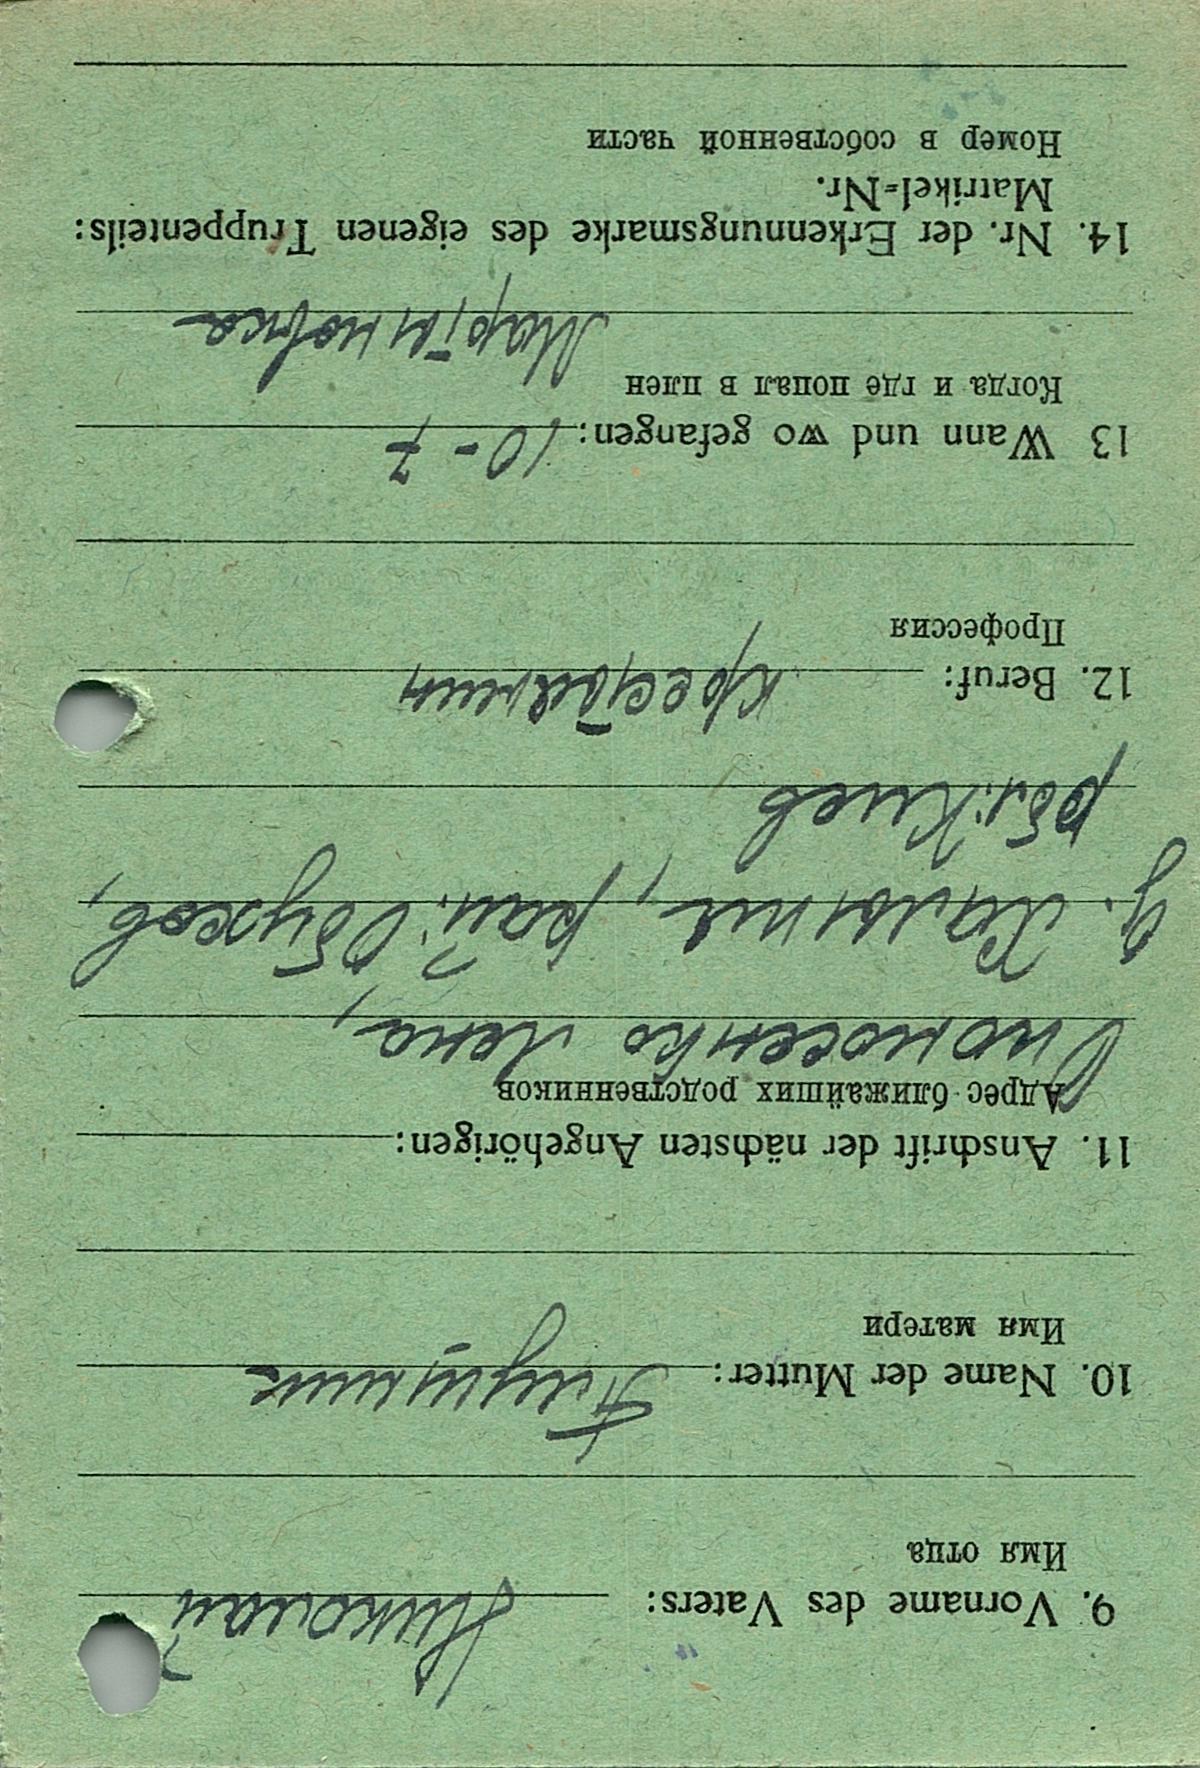 9. Vorname des Vaters: Николай
Имя отца
10. Name der Mutter:
Имя матери
11. Anschrift der nächsten Angehörigen:
Адрес ближайших родственников
Опонасенко Лена,
д. Халыпи, рай. Обухов,
обл. Киев
12. Beruf: крестьянин
Профессия
13 Wann und wo gefangen: 10-7
Когда и где попал в плен
14. Nr. der Erkennungsmarke des eigenen Truppenteils:
Matrikel=Nr.
Номер в собственной части